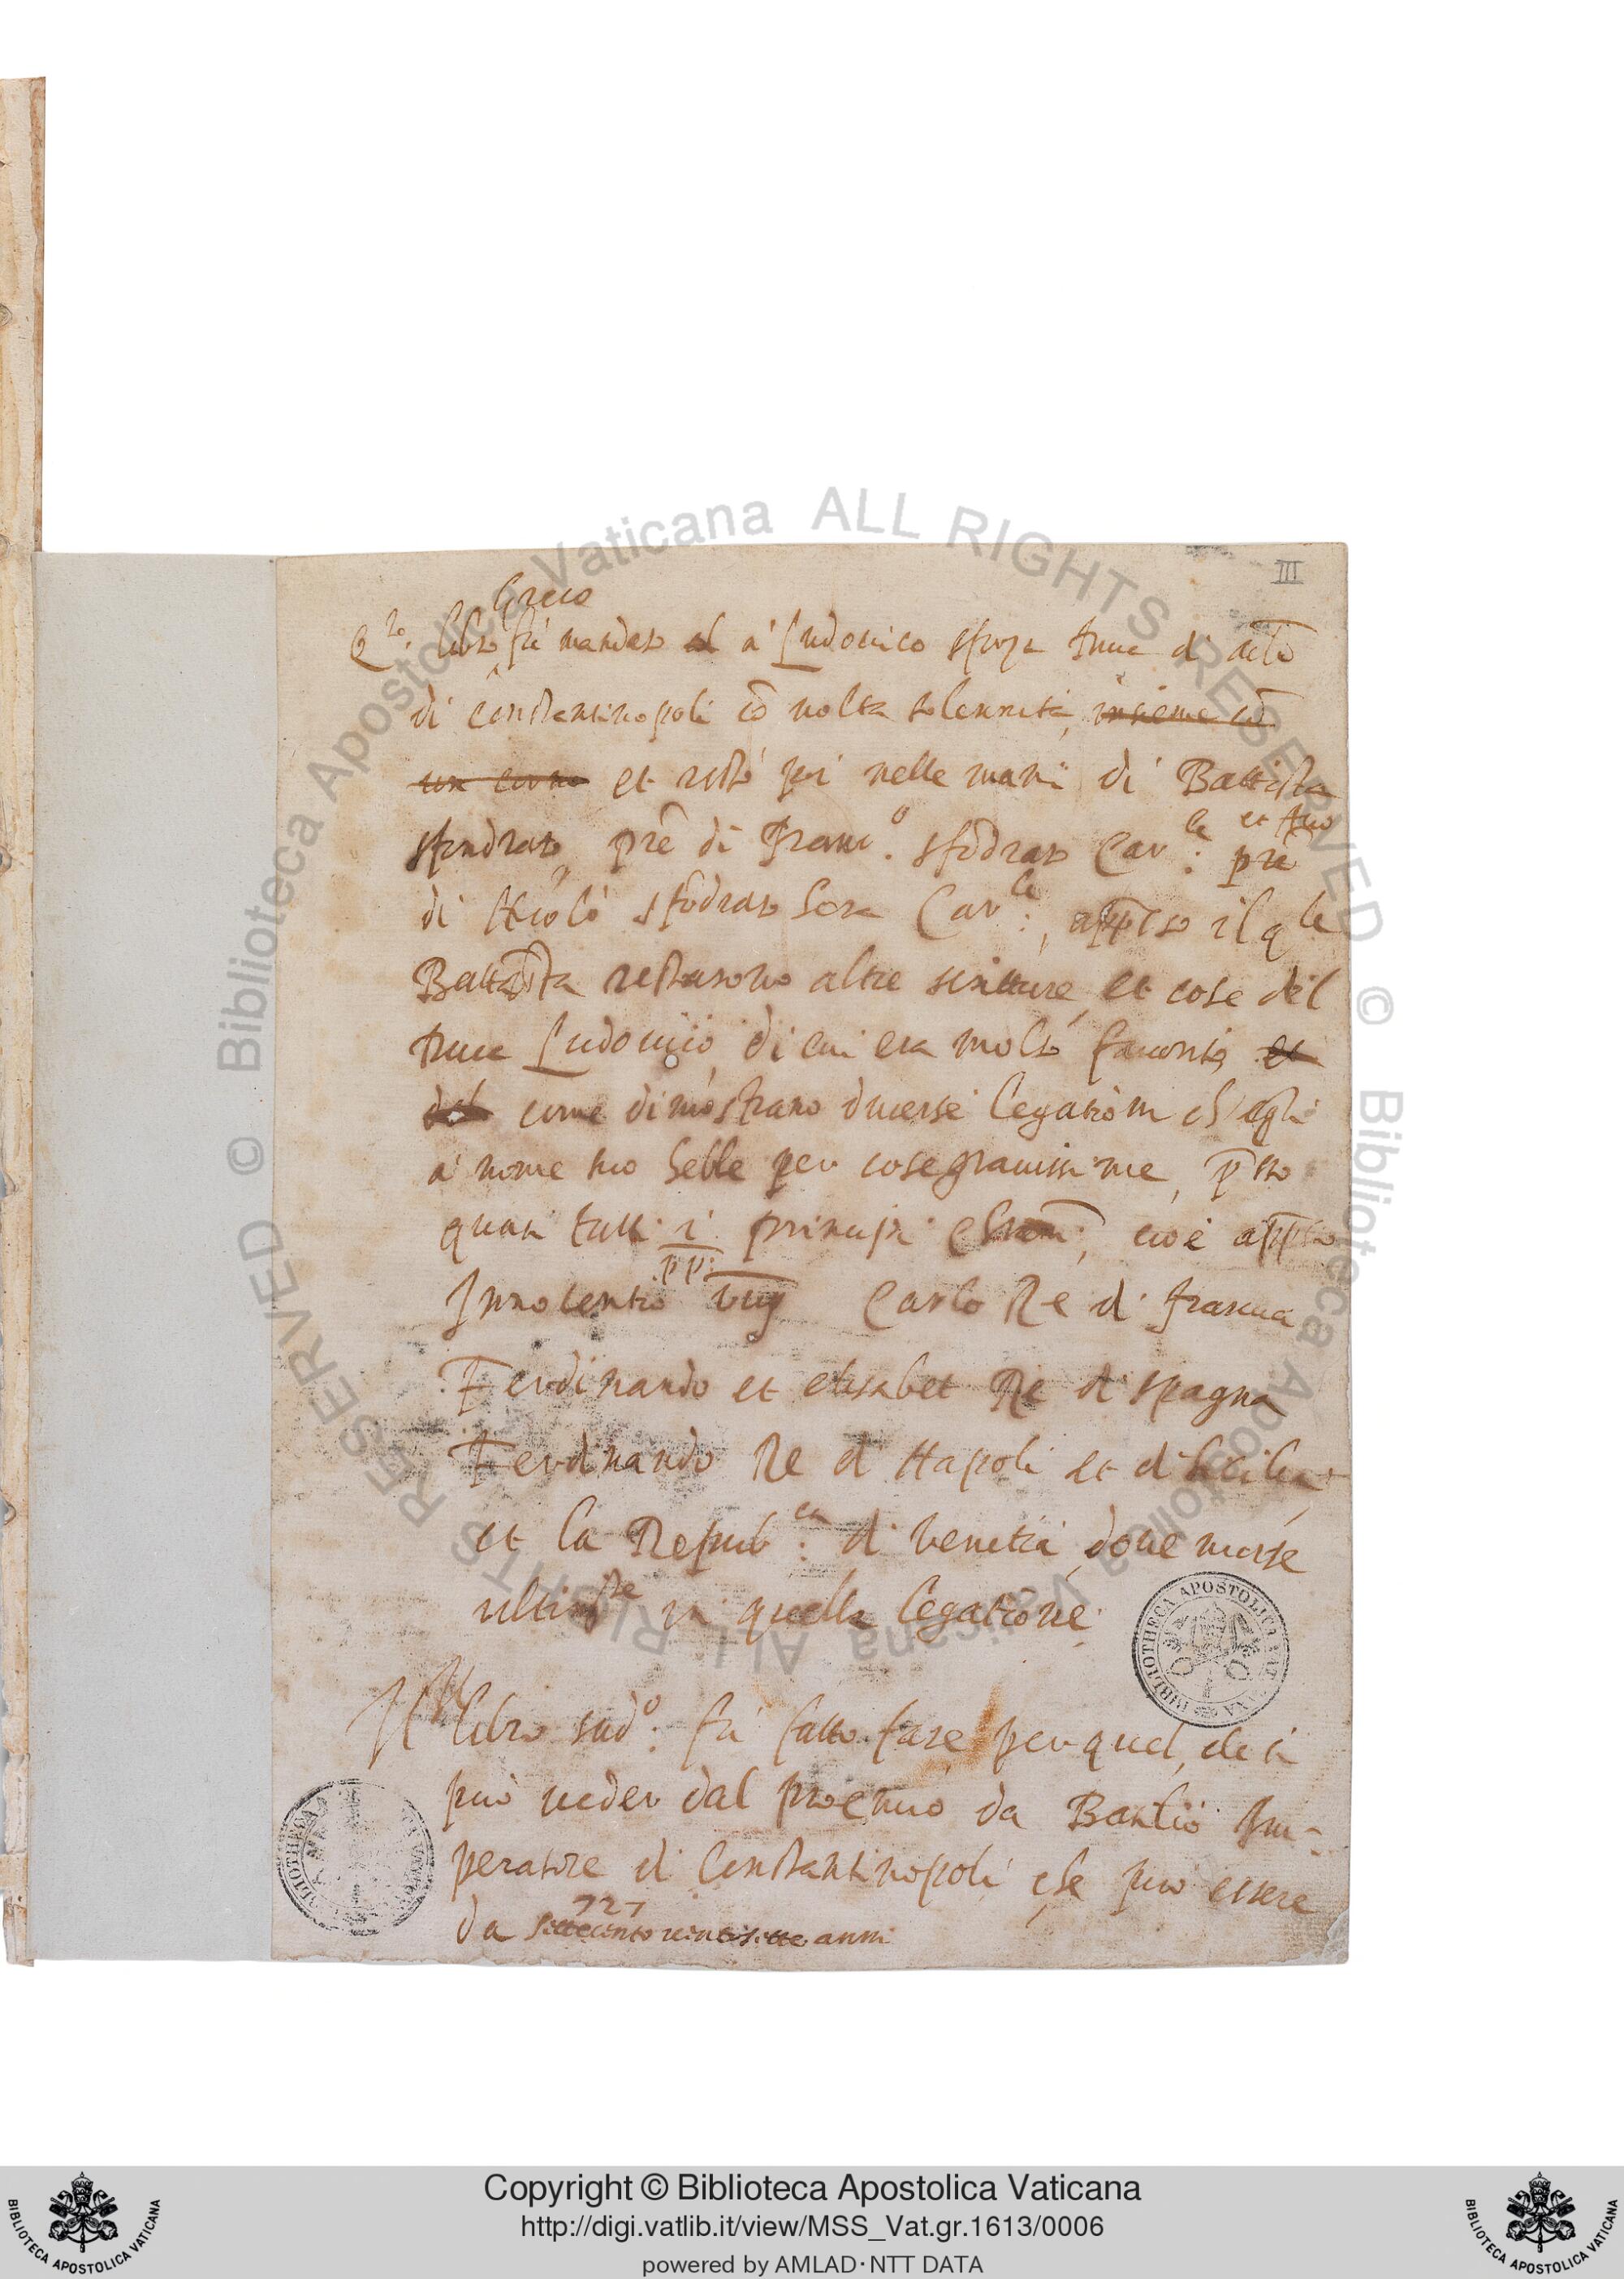 III
Greco
Q.to libro fù mandato a' Ludouico sforza Duca di
di Constantinopoli cõ molta solennità, insieme cõ
un corno et restò poi nelle mani di Battista
sfondrato prẽ di Franc.o sfõdrato Car.le et Auo
di Nicolò sfõdrato hora Car.le, app̃sso il q.le
Battista restarono altre scritture, et cose del
Duca Ludouico, di cui era molto fauorito, et
come dimostrano diuerse legationi ch'egli
a' nome suo hebbe per cose grauissime, p̃sso
quasi tutti i principi, cioè app̃sso
Innocentio pp: viij Carlo Re di francia
Ferdinando et elisabet Re di spagna
Ferdinando Re di Napoli et di Sicilia
et la Repub.ca di venetia, doue morse
in quella legatione.
Il libro sud.o fù fatto fare, per quel, che si
può ueder dal proemio da Basilio Im-
peratore di Constantinopoli che può essere
727
da settecento uintisette anni
BIBLIOTHECA APOSTOLICA VATICANA
© Biblioteca Apostolica Vaticana ALL RIGHTS RESERVED © Biblioteca Apostolica Vaticana ALL RIGHTS RESERVED
Copyright © Biblioteca Apostolica Vaticana
http://digi.vatlib.it/view/MSS_Vat.gr.1613/0006
powered by AMLAD·NTT DATA
BIBLIOTECA APOSTOLICA VATICANA
BIBLIOTECA APOSTOLICA VATICANA